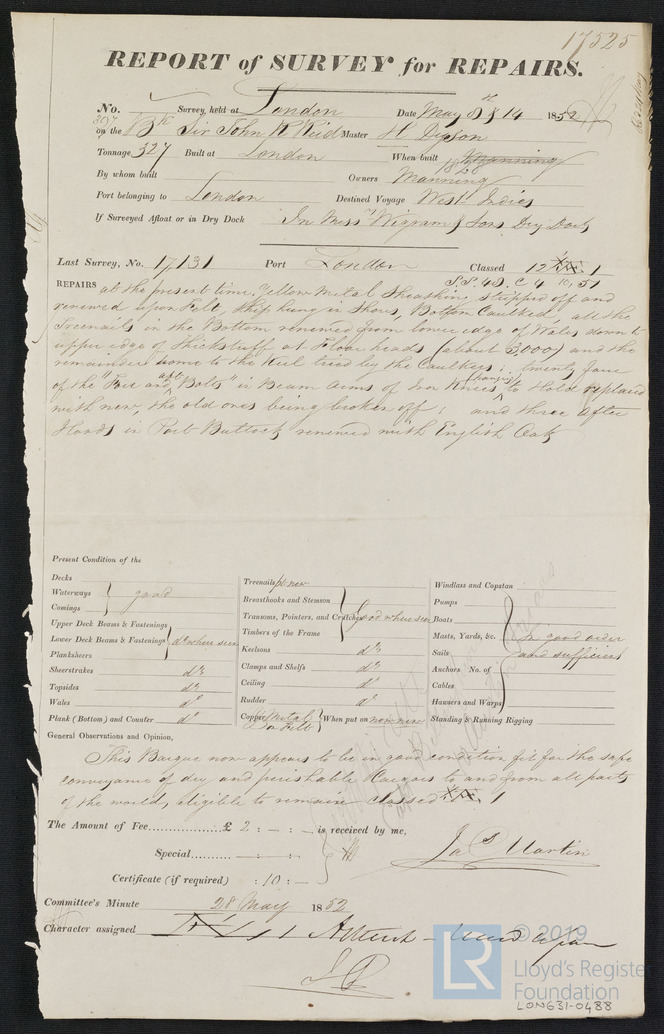 17525
REPORT of SURVEY for REPAIRS.
No. Survey, held at London Date May 8th & 14 1852
397 on the Bk Sir John R Reid Master H Dyson
Tonnage 327 Built at London When built Manning 1826
By whom built Owners Manning
Port belonging to London Destined Voyage West Indies
If Surveyed Afloat or in Dry Dock In Messrs Wigram & Sons Dry Dock
Last Survey, No. 17131 Port London Classed 12 1
S.S. 48. C 4 10, 51
REPAIRS at the present time, Yellow Metal Sheathing stripped off and
renewed upon Felt, Ship hung in Shores, Bottom Caulked, all the
Treenails in the Bottom renewed from lower edge of Wales down to
upper edge of thickstuff at Floorheads (about 3,000) and the
remainder some to the Keel tried by the Caulkers; twenty four
of the "Fore and aft Bolts" in Beam arms of Iron hanging Knees to Hold replaced
with new, the old ones being broken off; and three after
Hoods in Port Buttock renewed with English Oak
Present Condition of the
Decks
Waterways good
Comings
Upper Deck Beams & Fastenings
Lower Deck Beams & Fastenings do where seen
Planksheers
Sheerstrakes do
Topsides do
Wales do
Plank (Bottom) and Counter do
Treenails pt new
Breasthooks and Stemson
Transoms, Pointers, and Crutches good where seen
Timbers of the Frame
Keelsons do
Clamps and Shelfs do
Ceiling do
Rudder do
Copper Y Metal When put on now new
on Felt
Windlass and Capstan
Pumps
Boats
Masts, Yards, &c. In good order
Sails and sufficient
Anchors No. of
Cables
Hawsers and Warps
Standing & Running Rigging
General Observations and Opinion,
This Barque now appears to be in good condition fit for the safe
conveyance of dry and perishable Cargoes to and from all parts
of the world, eligible to remain classed 1
The Amount of Fee............... £ 2 : - : - is received by me,
Special........... - : - : -
Certificate (if required) : 10 : -
Jas Martin
Committee's Minute 28 May 1852
Character assigned
© 2019
LR
Lloyd's Register
Foundation
LON631-0488